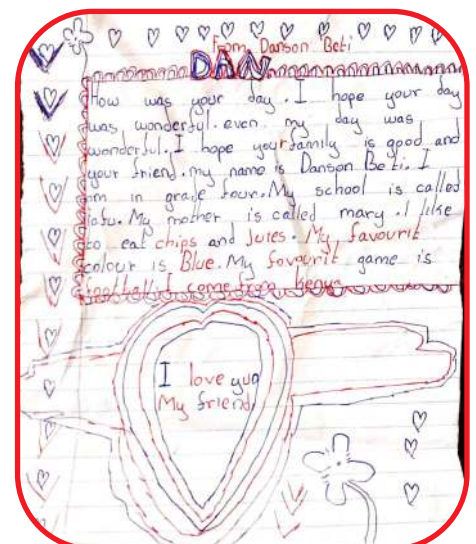 From Danson Beti
DAN
How was your day. I hope your day
was wonderful. even my day was
wonderful. I hope your family is good and
your friend. my name is Danson Beti. I
am in grade four. My school is called
Jofu. My mother is called mary. I like
to eat chips and Juies. My favourit
colour is Blue. My favourit game is
football. I come from kenya
I love you
My friend